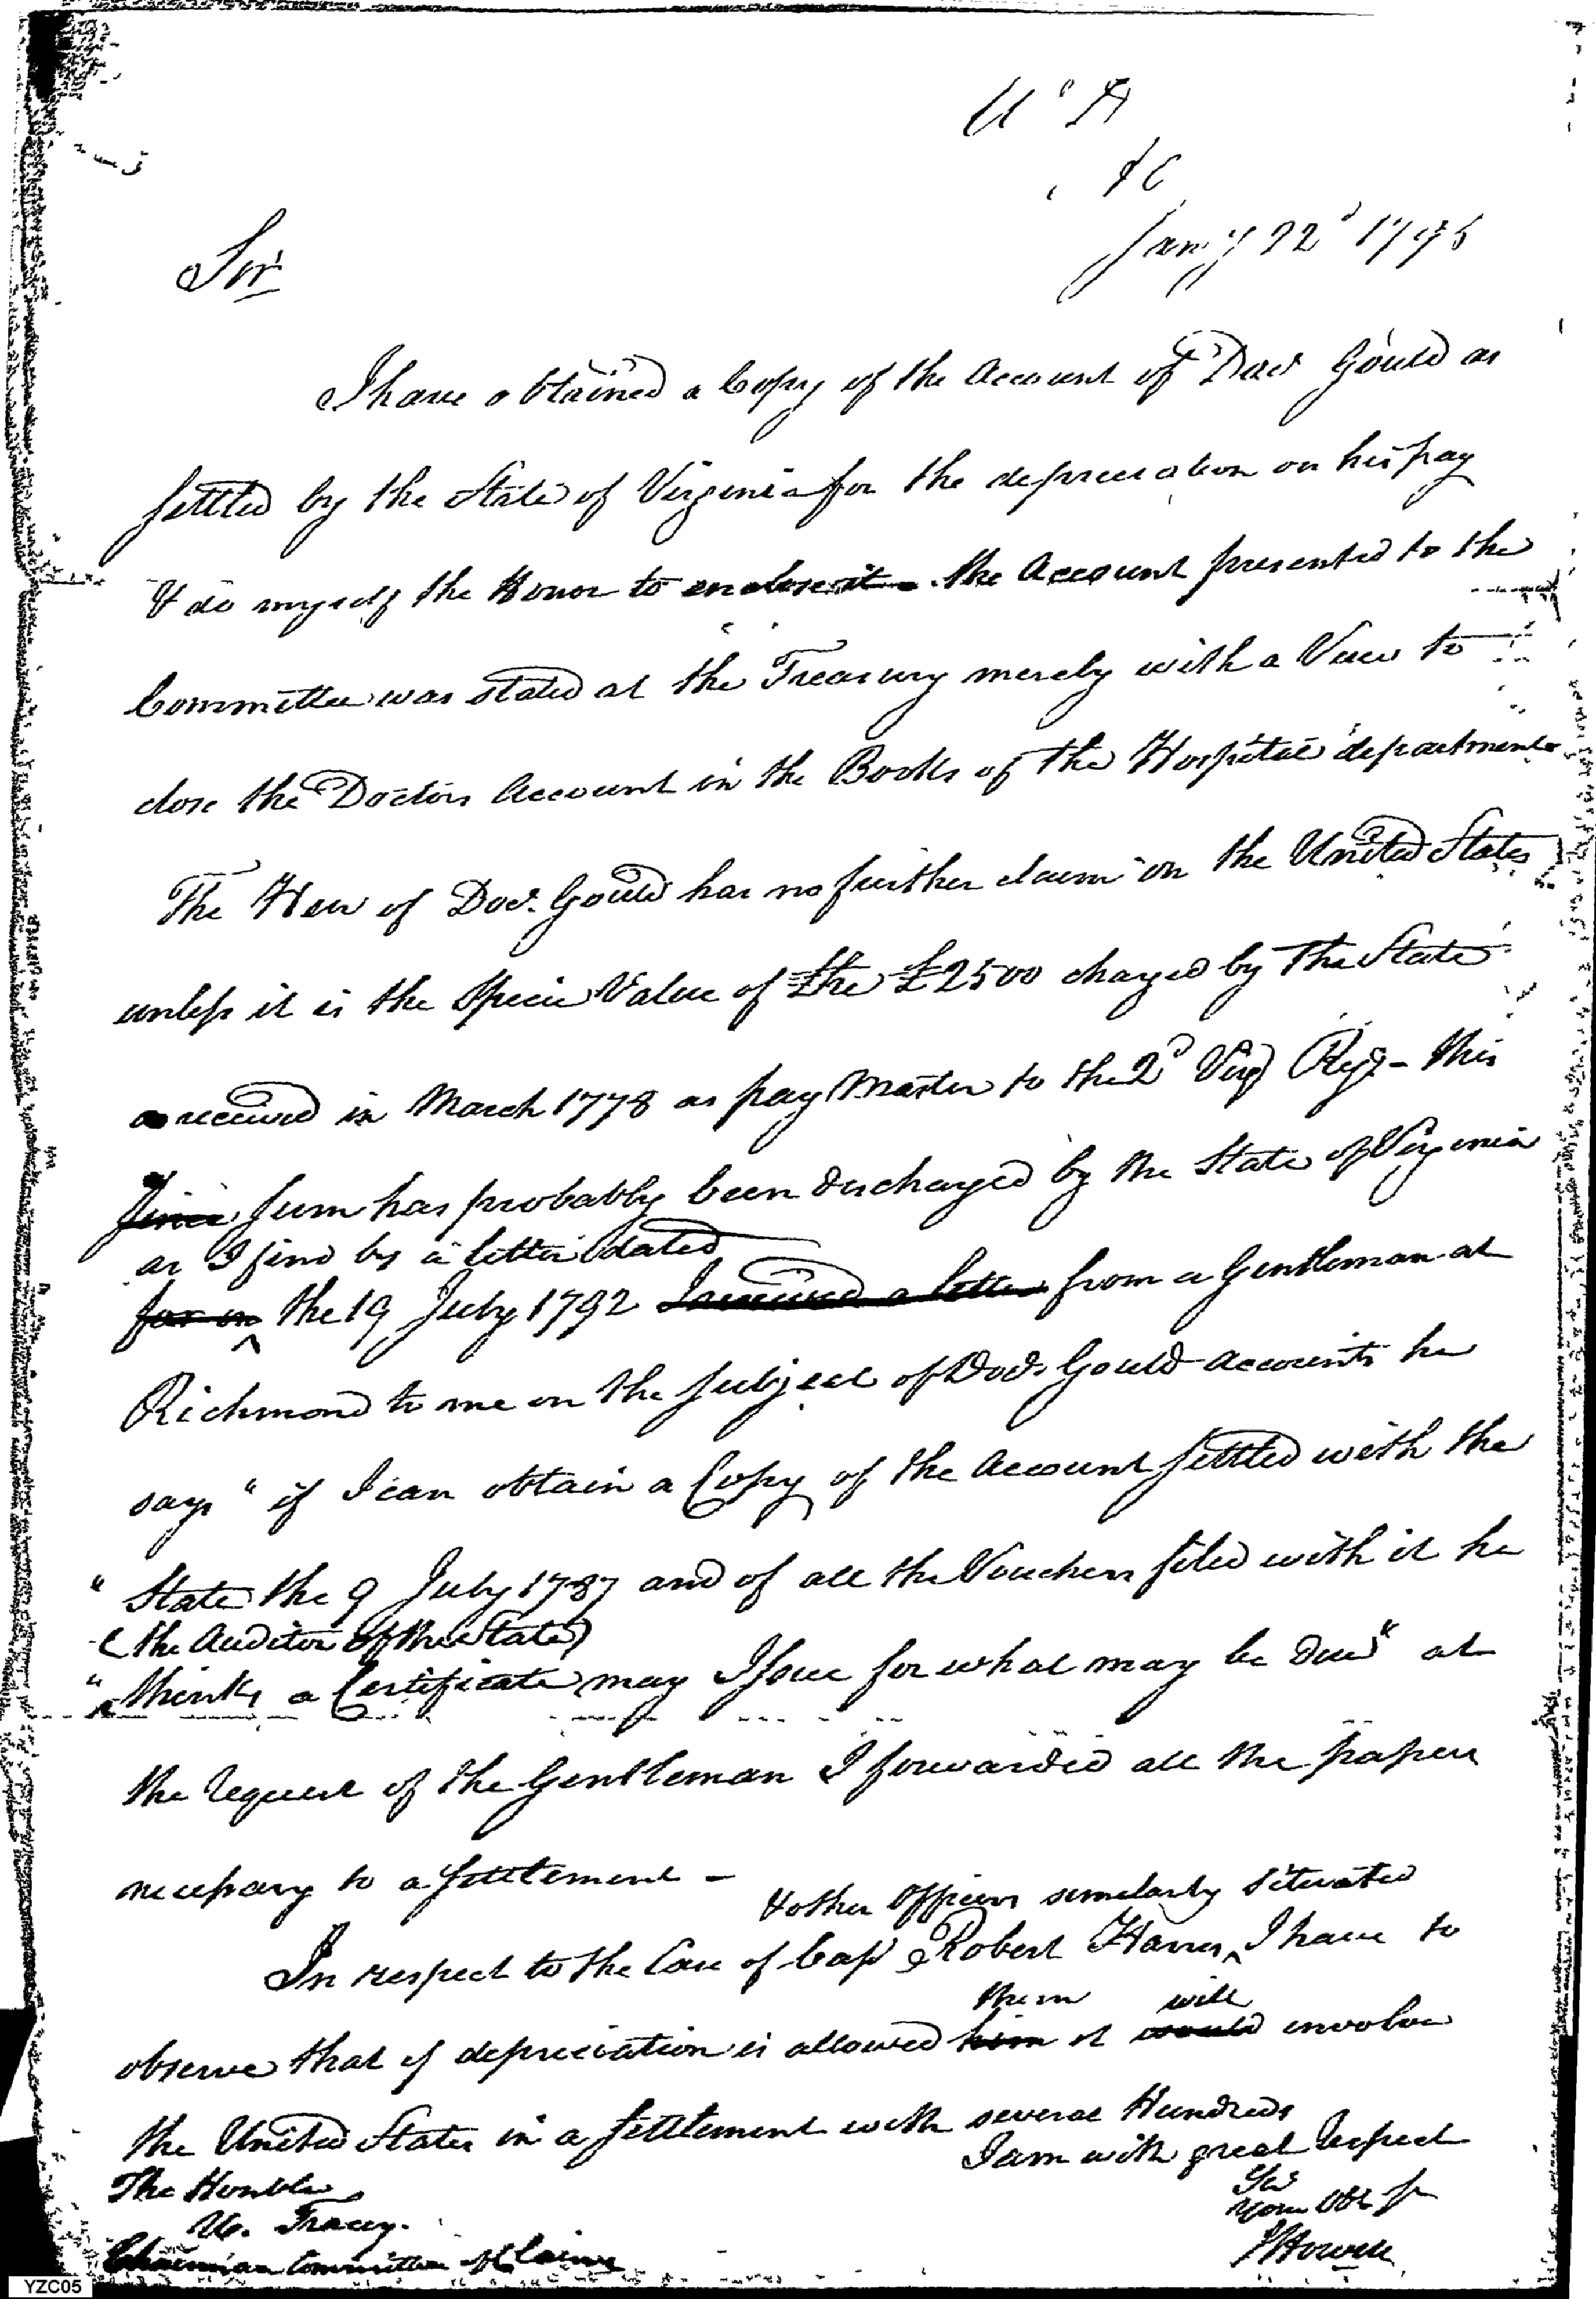 Jany 22d 1795
Sir
I have obtained a Copy of the Account of Doct Gould as
settled by the State of Virginia for the depreciation on his pay
& do myself the Honor to enclose it - the Account presented to the
Committee was stated at the Treasury merely with a View to
close the Doctors Account in the Books of the Hospital department
The Heir of Doct. Gould has no further claim on the United States
unless it is the Specie Value of the £2500 charged by the State
as received in March 1778 as pay Master to the 2d Virga Regt - this
Since sum has probably been discharged by the State of Virginia
as I find by a letter dated
for on the 19 July 1792 I received a letter from a Gentleman at
Richmond to me on the subject of Doct. Gould accounts he
says " if I can obtain a Copy of the Account settled with the
" State the 9 July 1787 and of all the Vouchers filed with it he
(the Auditor of the State)
" thinks a Certificate may Issue for what may be due" at
the request of the Gentleman I forwarded all the papers
necessary to a settlement -
& other Officers similarly situated
In respect to the Case of Capt Robert Harris I have to
them will
observe that if depreciation is allowed him it would involve
the United States in a settlement with several Hundreds
I am with great respect
The Honble
Sir
U. Tracey.
your Obt St
Chairman Committee of Claims
J Howell
YZC05